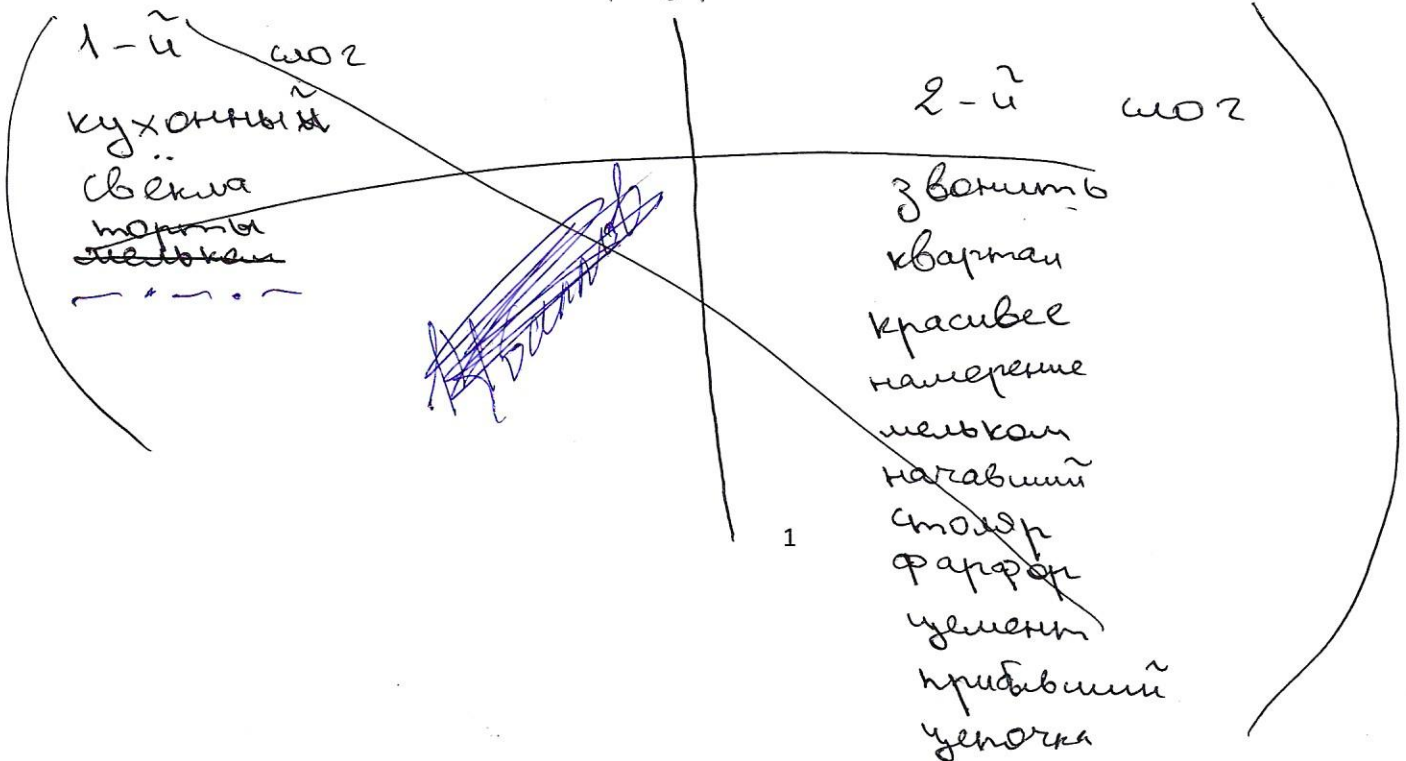 1-й слог
кухонный
свёкла
торты
мельком
2-й слог
звонить
квартал
красивее
намерение
мельком
начавший
столяр
фарфор
цемент
прибывший
цепочка
1